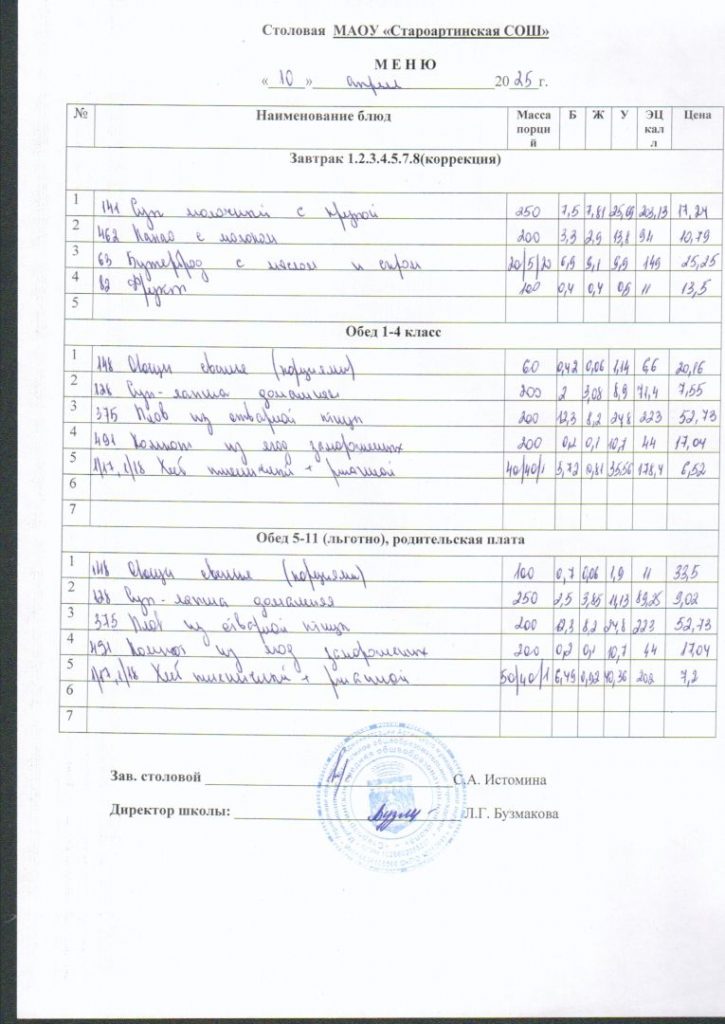 Столовая МАОУ «Староартинская СОШ»
М Е Н Ю
« 10 » апрель 2025 г.
№ Наименование блюд Масса порций Б Ж У ЭЦ калл Цена
Завтрак 1.2.3.4.5.7.8(коррекция)
1 141 Суп молочный с крупой 250 7,5 7,81 25,09 203,13 17,24
2 462 Какао с молоком 200 3,3 2,9 13,8 94 10,79
3 63 Бутерброд с маслом и сыром 20/5/20 6,9 9,1 9,9 149 25,25
4 82 Фрукт 100 0,4 0,4 11 13,5
5
Обед 1-4 класс
1 148 Овощи свежие (порциями) 60 0,42 0,06 1,14 6,6 20,16
2 128 Суп-лапша домашняя 200 2 3,08 8,9 71,4 7,55
3 375 Плов из отварной птицы 200 12,3 8,2 24,8 223 52,73
4 491 Компот из ягод замороженных 200 0,2 0,1 10,7 44 17,04
5 1/17, 1/18 Хлеб пшеничный + ржаной 40/40/1 5,72 0,81 35,56 178,4 6,52
6
7
Обед 5-11 (льготно), родительская плата
1 148 Овощи свежие (порциями) 100 0,7 0,06 1,9 11 33,5
2 128 Суп-лапша домашняя 250 2,5 3,85 11,13 89,25 9,02
3 375 Плов из отварной птицы 200 12,3 8,2 24,8 223 52,73
4 491 Компот из ягод замороженных 200 0,2 0,1 10,7 44 17,04
5 1/17, 1/18 Хлеб пшеничный + ржаной 50/40/1 6,49 0,92 40,36 202 7,2
6
7
Зав. столовой С.А. Истомина
Директор школы: Л.Г. Бузмакова